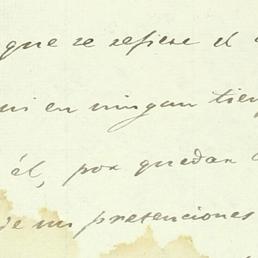 que se refiere el
ni en ningun tiem
él, por quedan
de mis pretenciones